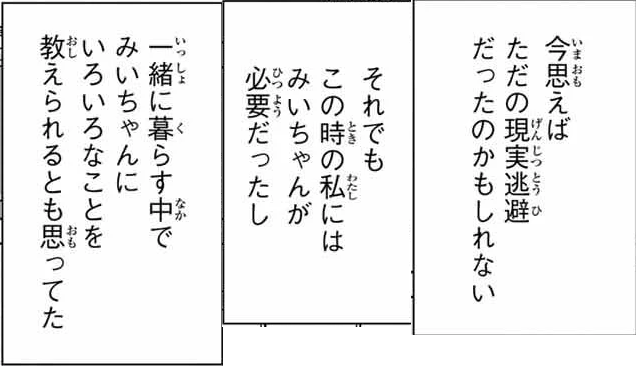 今思えば
ただの現実逃避
だったのかもしれない
それでも
この時の私には
みいちゃんが
必要だったし
一緒に暮らす中で
みいちゃんに
いろいろなことを
教えられるとも思ってた